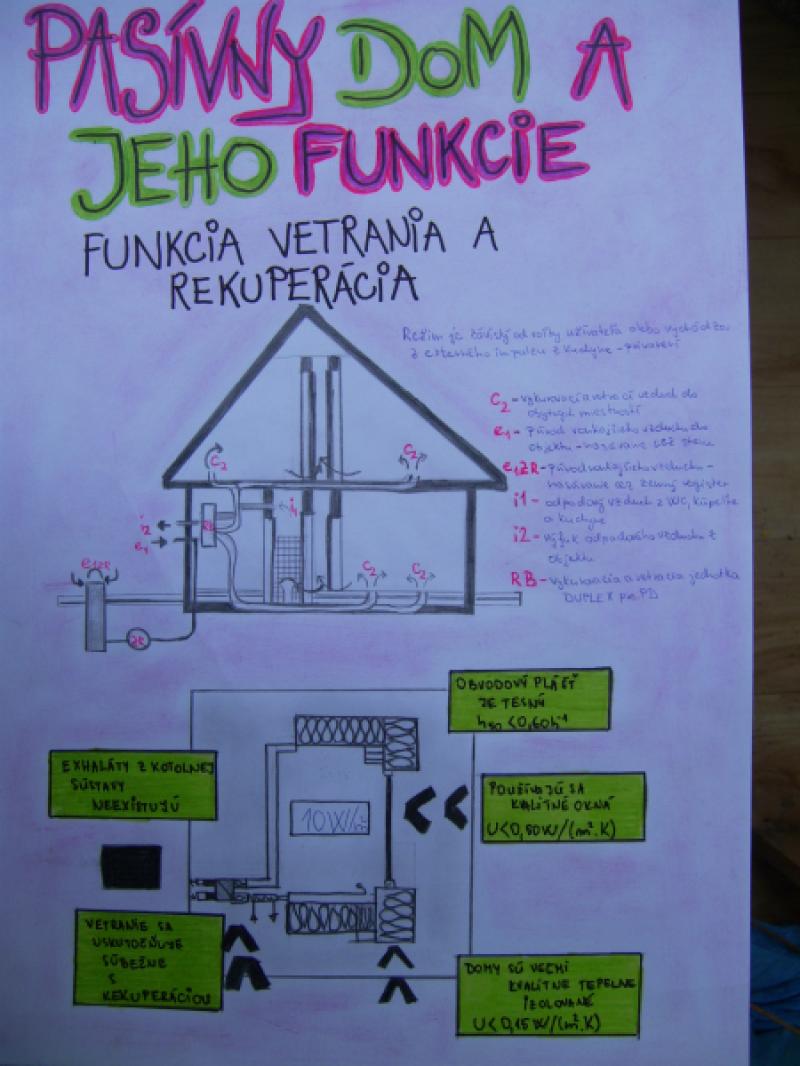 PASÍVNY DOM A
JEHO FUNKCIE
FUNKCIA VETRANIA A
REKUPERÁCIA
Režim je závislý od voľby užívateľa alebo vychádza
z externého impulzu z kuchyne - privretení
C2 - vykurovací a vetrací vzduch do
obytných miestností
e1 - Prívod vonkajšieho vzduchu do
objektu - nasávanie cez stenu
e1ZR - prívod vonkajšieho vzduchu -
nasávanie cez zemný register
i1 - odpadový vzduch z WC, kúpeľne
a kuchyne
i2 - výfuk odpadového vzduchu z
objektu
RB - vykurovacia a vetracia jednotka
DUPLEX pre PD
C2
C2
i1
i2
RB
e1
e1ZR
C2
C2
ZR
OBVODOVÝ PLÁŠŤ
JE TESNÝ
h50 < 0,60h-1
EXHALÁTY Z KOTOLNEJ
SÚSTAVY
NEEXISTUJÚ
POUŽÍVAJÚ SA
KVALITNÉ OKNÁ
U<0,80W/(m².K)
10W/m²
VETRANIE SA
USKUTOČŇUJE
SÚBEŽNE
S
REKUPERÁCIOU
DOMY SÚ VEĽMI
KVALITNE TEPELNE
IZOLOVANÉ
U<0,15W/(m².K)